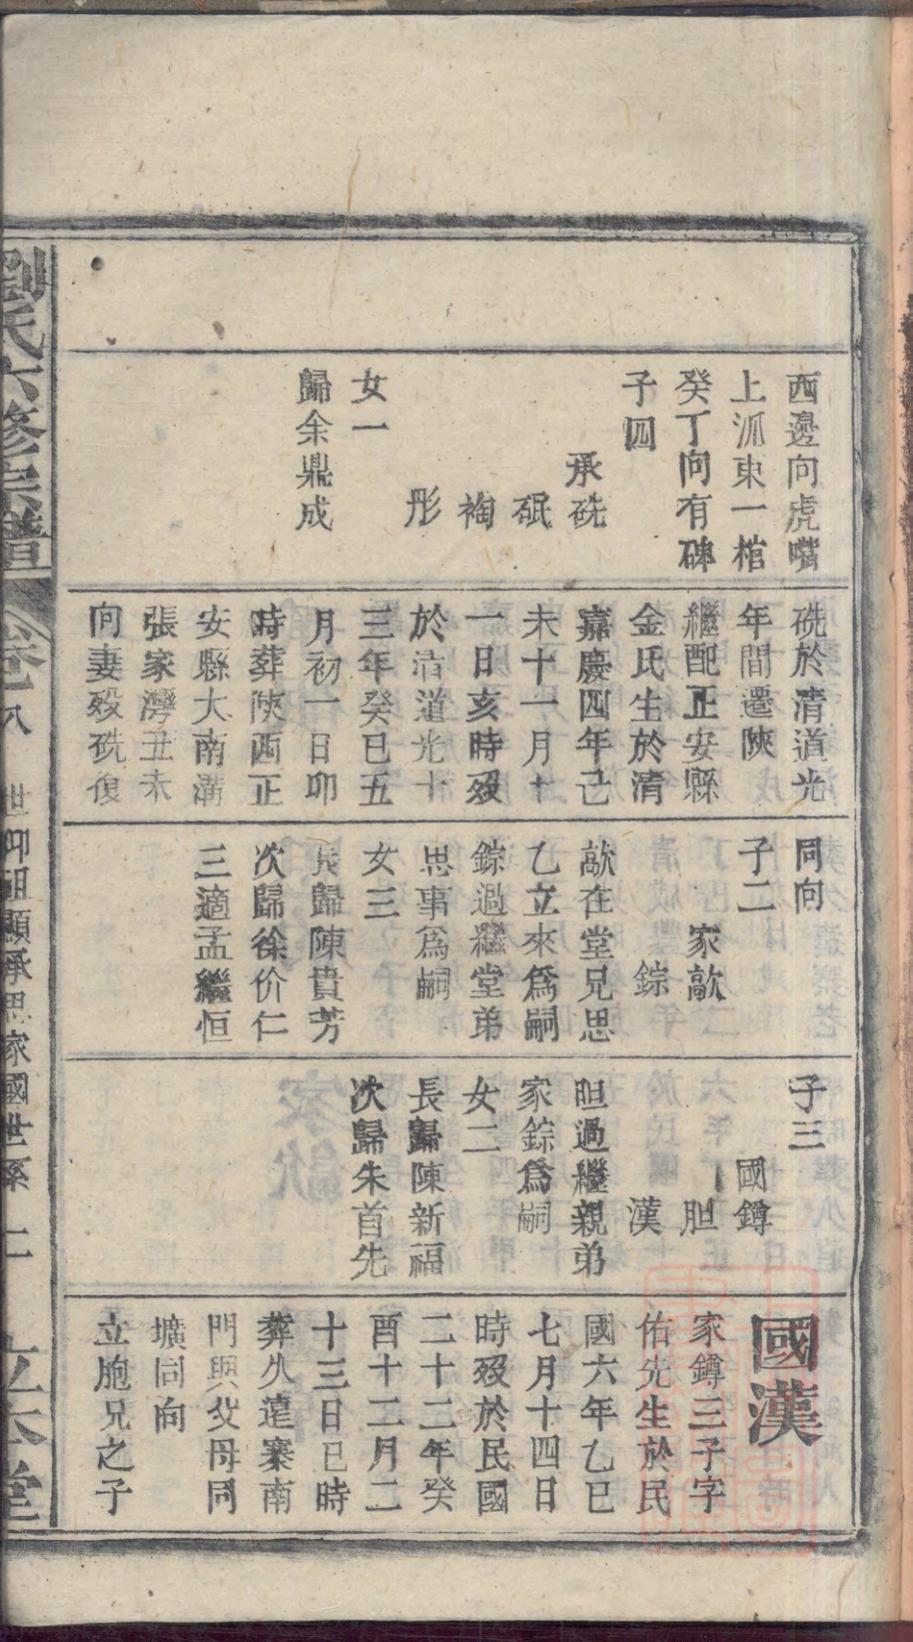 西邊向虎嘴
上派東一棺
癸丁向有碑
子四
承硄
砥
裪
彤
女一
歸余鼎成
硄於清道光
年間遷陝
繼配正安縣
金氏生於清
嘉慶四年己
未十一月十
一日亥時歿
於清道光十
三年癸巳五
月初一日卯
時葬陝西正
安縣大南溝
張家灣丑未
向妻歿硄復
同向
子二
家歊
錝
歊在堂兄思
乙立來為嗣
錝過繼堂弟
思事為嗣
女三
長歸陳貴芳
次歸徐价仁
三適孟繼恒
子三
國鐏
胆
漢
胆過繼親弟
家錝為嗣
女二
長歸陳新福
次歸朱首先
國漢
家鐏三子字
佑先生於民
國六年乙巳
七月十四日
時歿於民國
二十二年癸
酉十二月二
十三日巳時
葬久遠寨南
門與父母同
壙同向
立胞兄之子
劉氏六修宗譜
卷八
世仰祖顯承思家國世系
二
立本堂